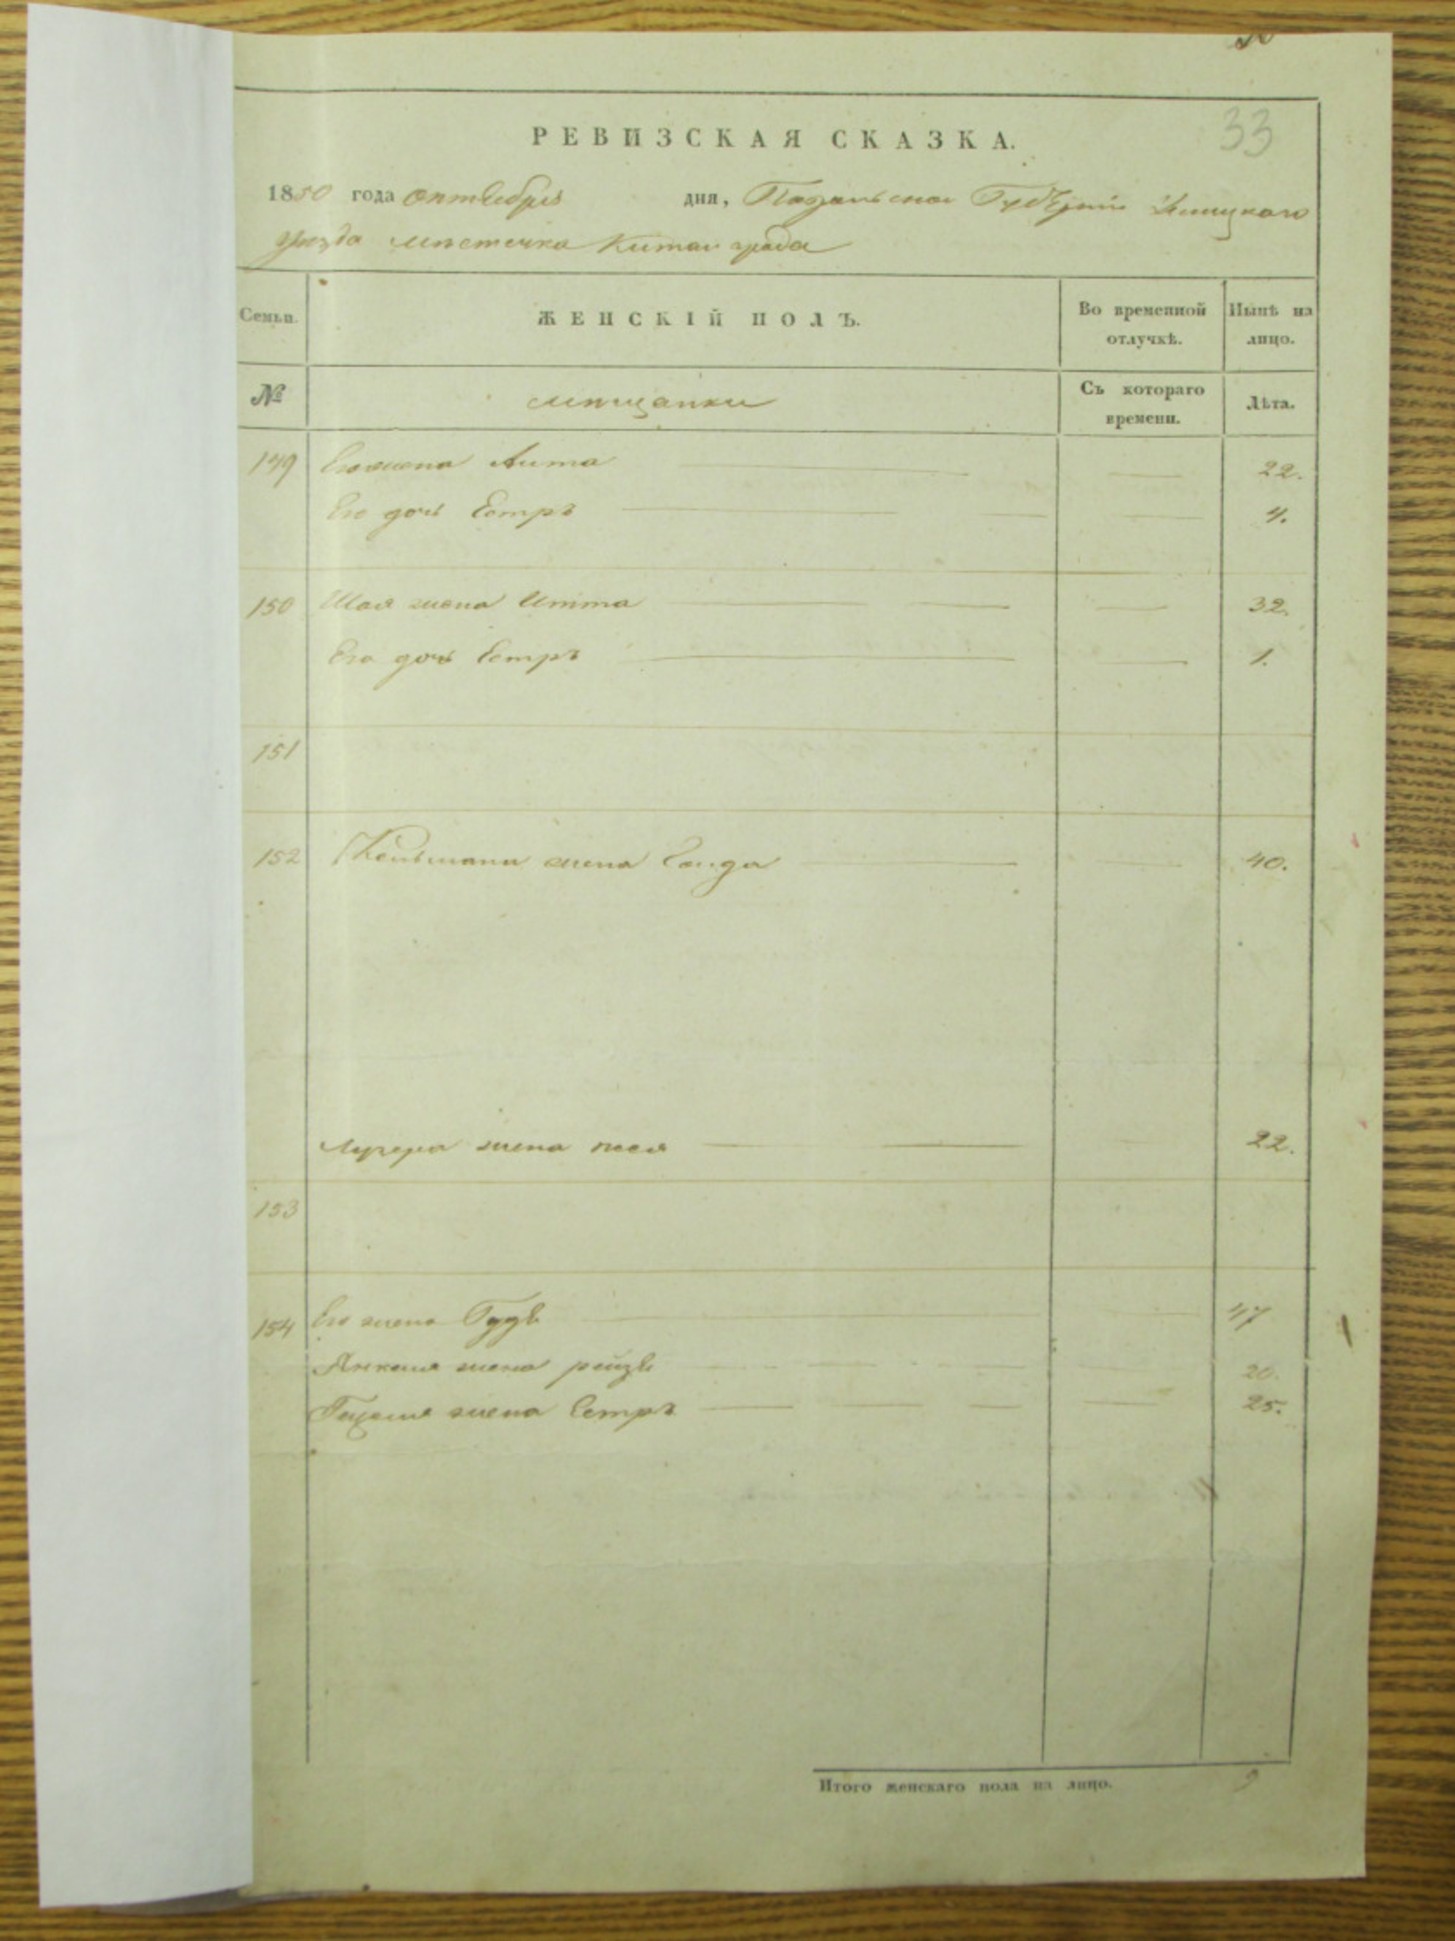 33
РЕВИЗСКАЯ СКАЗКА.
1850 года октября дня, Подольской Губернии Ушицкаго
уезда местечка Китай града
Семьи. ЖЕНСКІЙ ПОЛЪ. Во временной отлучкѣ. Нынѣ на лицо.
№ мещанки Съ котораго времени. Лѣта.
149 Его жена Анта 22.
Его дочь Естръ 4.
150 Шая жена Итта 32.
Его дочь Естръ 1.
151
152 Кельмана жена 40.
жена Песя 22.
153
154 Его жена 47
Янкеля жена рейзя 20.
жена Естръ 25.
Итого женскаго пола на лицо. 9